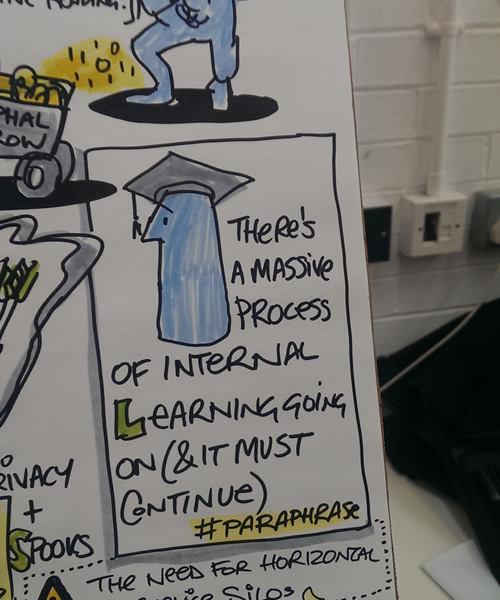 PHAL
ROW
THERE'S
A MASSIVE
PROCESS
OF INTERNAL
LEARNING GOING
ON (& IT MUST
CONTINUE)
#PARAPHRASE
RIVACY
+
SPOOKS
THE NEED FOR HORIZONTAL
SILOS